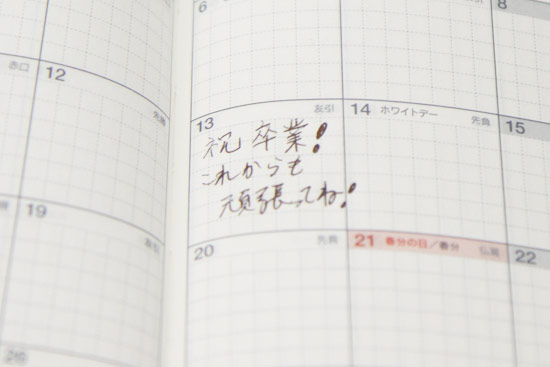 6
8
赤口
12
先勝
13
友引
14 ホワイトデー
先負
15
祝卒業!
これからも
頑張ってね!
19
友引
20
先負
21 春分の日/春分
仏滅
22